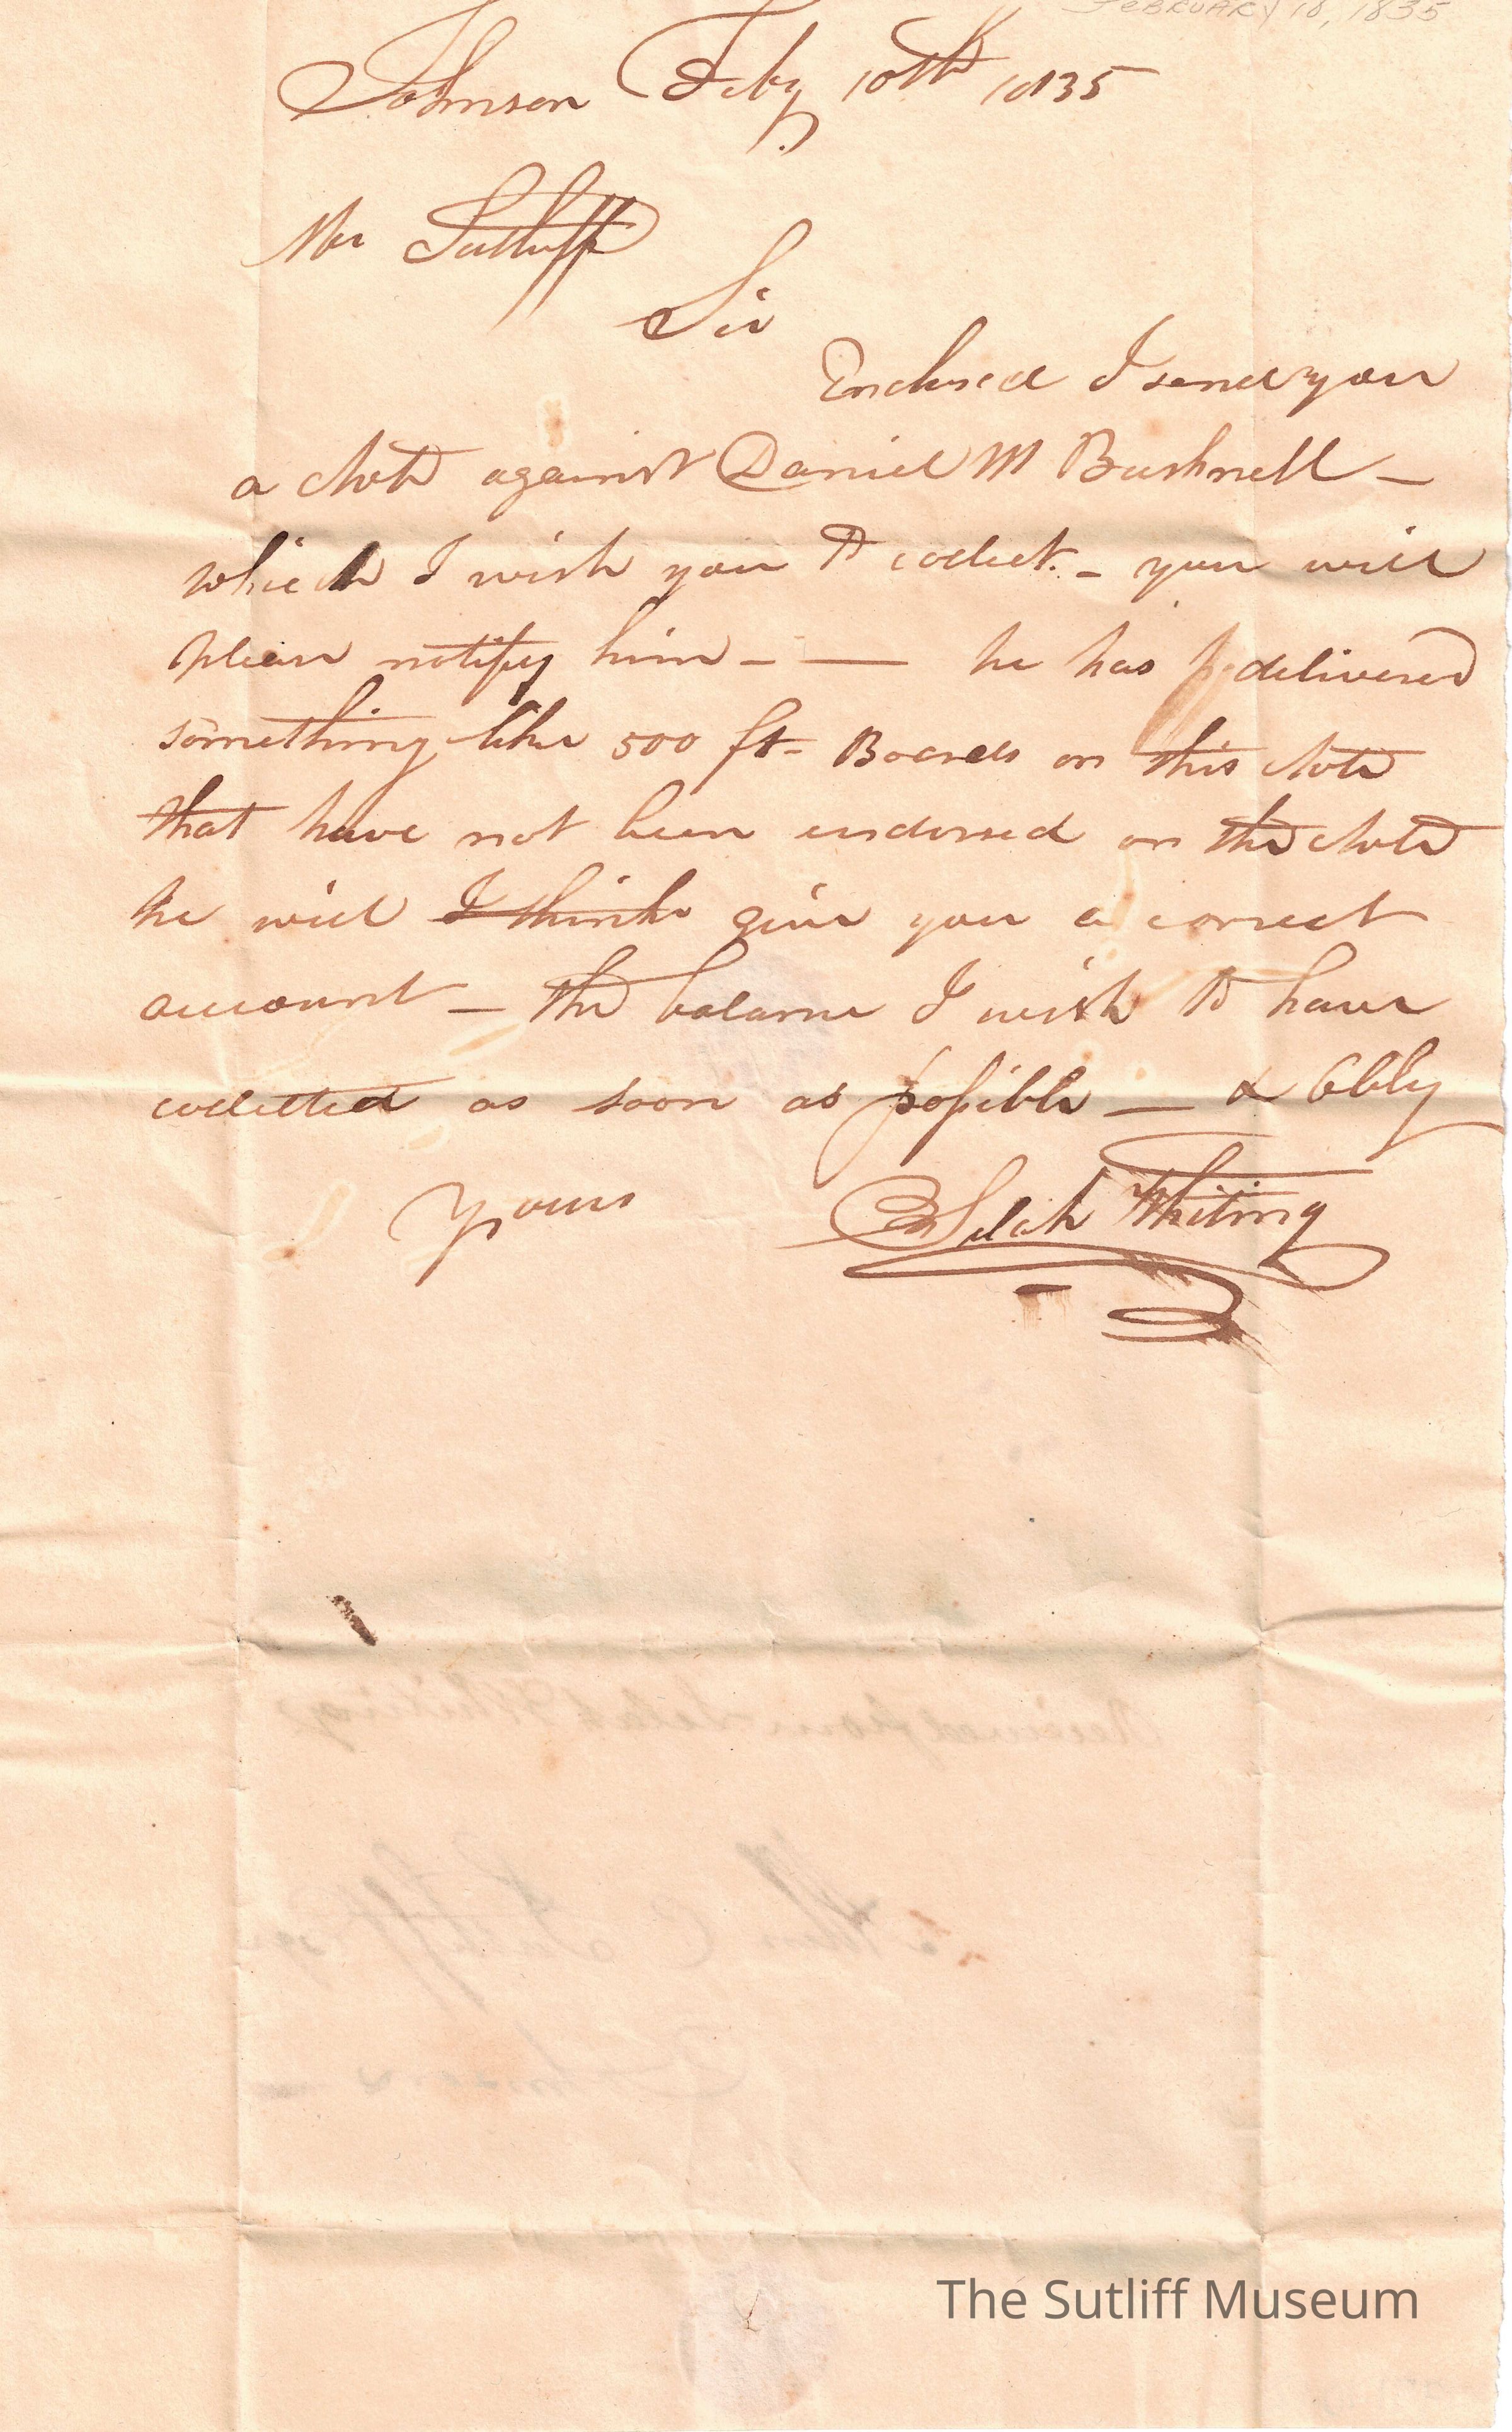 February 10, 1835
Johnson Feby 10th 1835
Mr Sutliff
Sir
Enclosed I send you
a Note against Daniel M Bushnell –
which I wish you to collect – you will
pleas notify him – — he has delivered
something like 500 ft Boards on this Note
that have not been endorsed on the Note
he will I think give you a correct
account – the balance I wish to have
collected as soon as possible — & Obly
Yours Selah Whiting
Received from Selah Whiting
C Sutliff
The Sutliff Museum